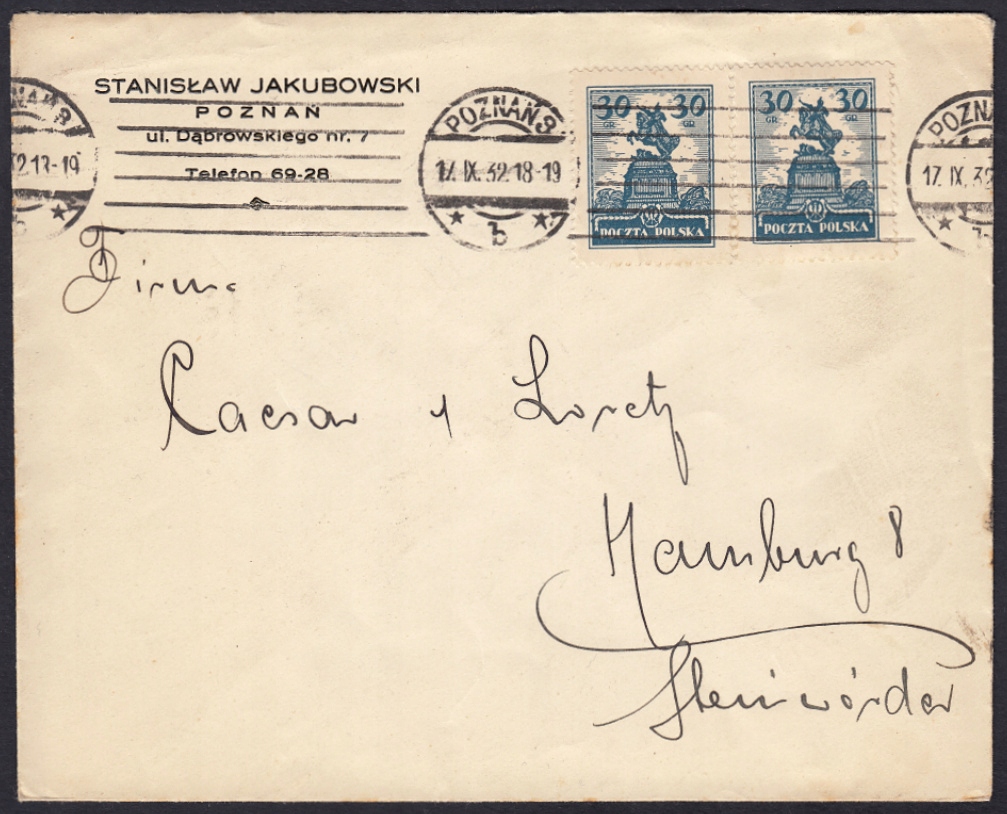 STANISŁAW JAKUBOWSKI
POZNAŃ
ul. Dąbrowskiego nr. 7
Telefon 69-28
POZNAŃ 3
17. IX. 32. 18-19
b
30 GR 30 GR
POCZTA POLSKA
30 GR 30 GR
POCZTA POLSKA
POZNA
17. IX. 32
NAŃ 3
32. 18-19
Firma
Caesar & Loretz
Hamburg 8
Steinwärder